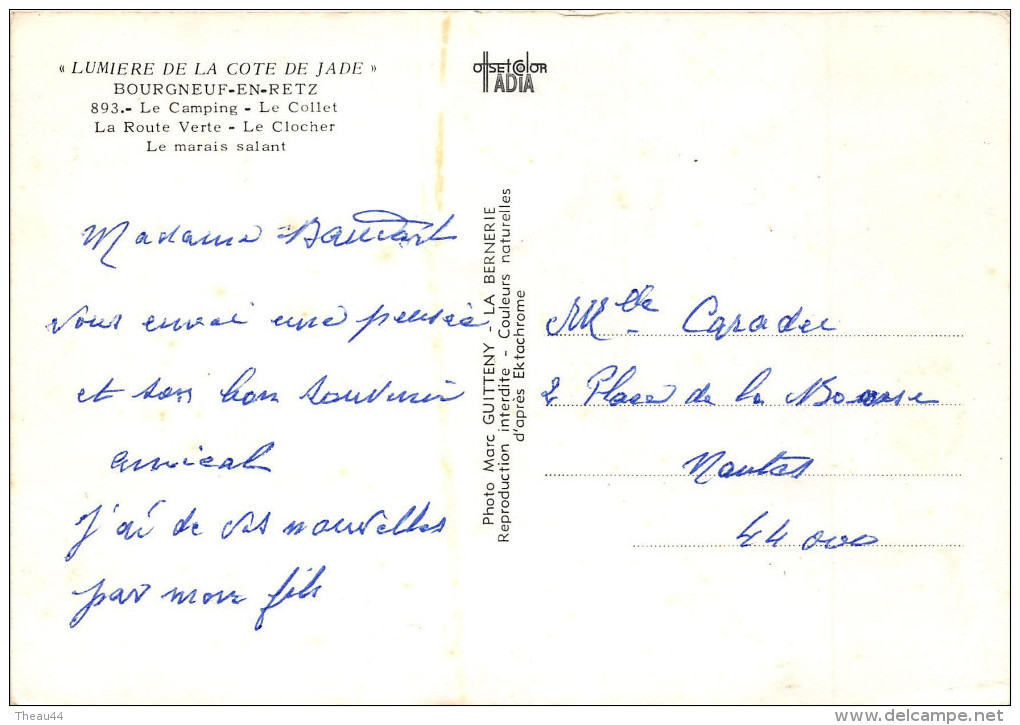 « LUMIERE DE LA COTE DE JADE »
BOURGNEUF-EN-RETZ
893.- Le Camping - Le Collet
La Route Verte - Le Clocher
Le marais salant
OffsetColor
ADIA
Madame
vous envoi une pensée
et son bon souvenir
amical
j'ai de vos nouvelles
par mon fils
Photo Marc GUITTENY - LA BERNERIE
Reproduction interdite - Couleurs naturelles
d'après Ektachrome
Mlle Caradec
2 Place de la Bourse
Nantes
44 000
Theau44
www.delcampe.net